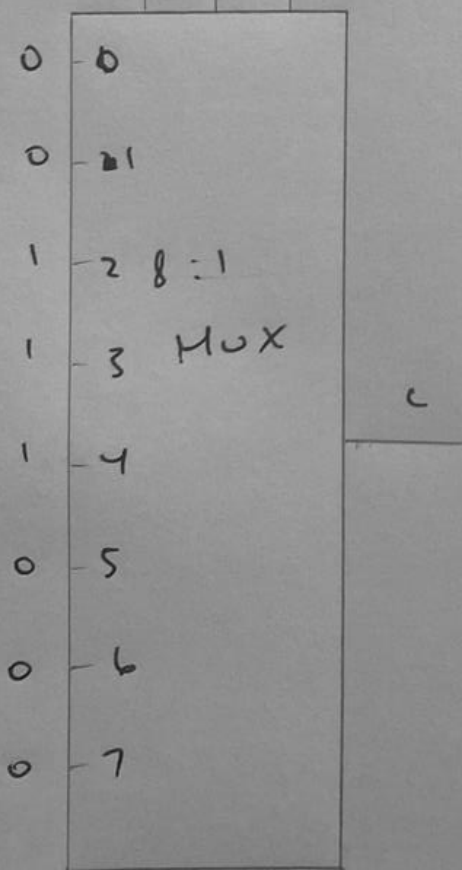 0 0
0 1
1 2 8:1
1 3 MUX
c
1 4
0 5
0 6
0 7